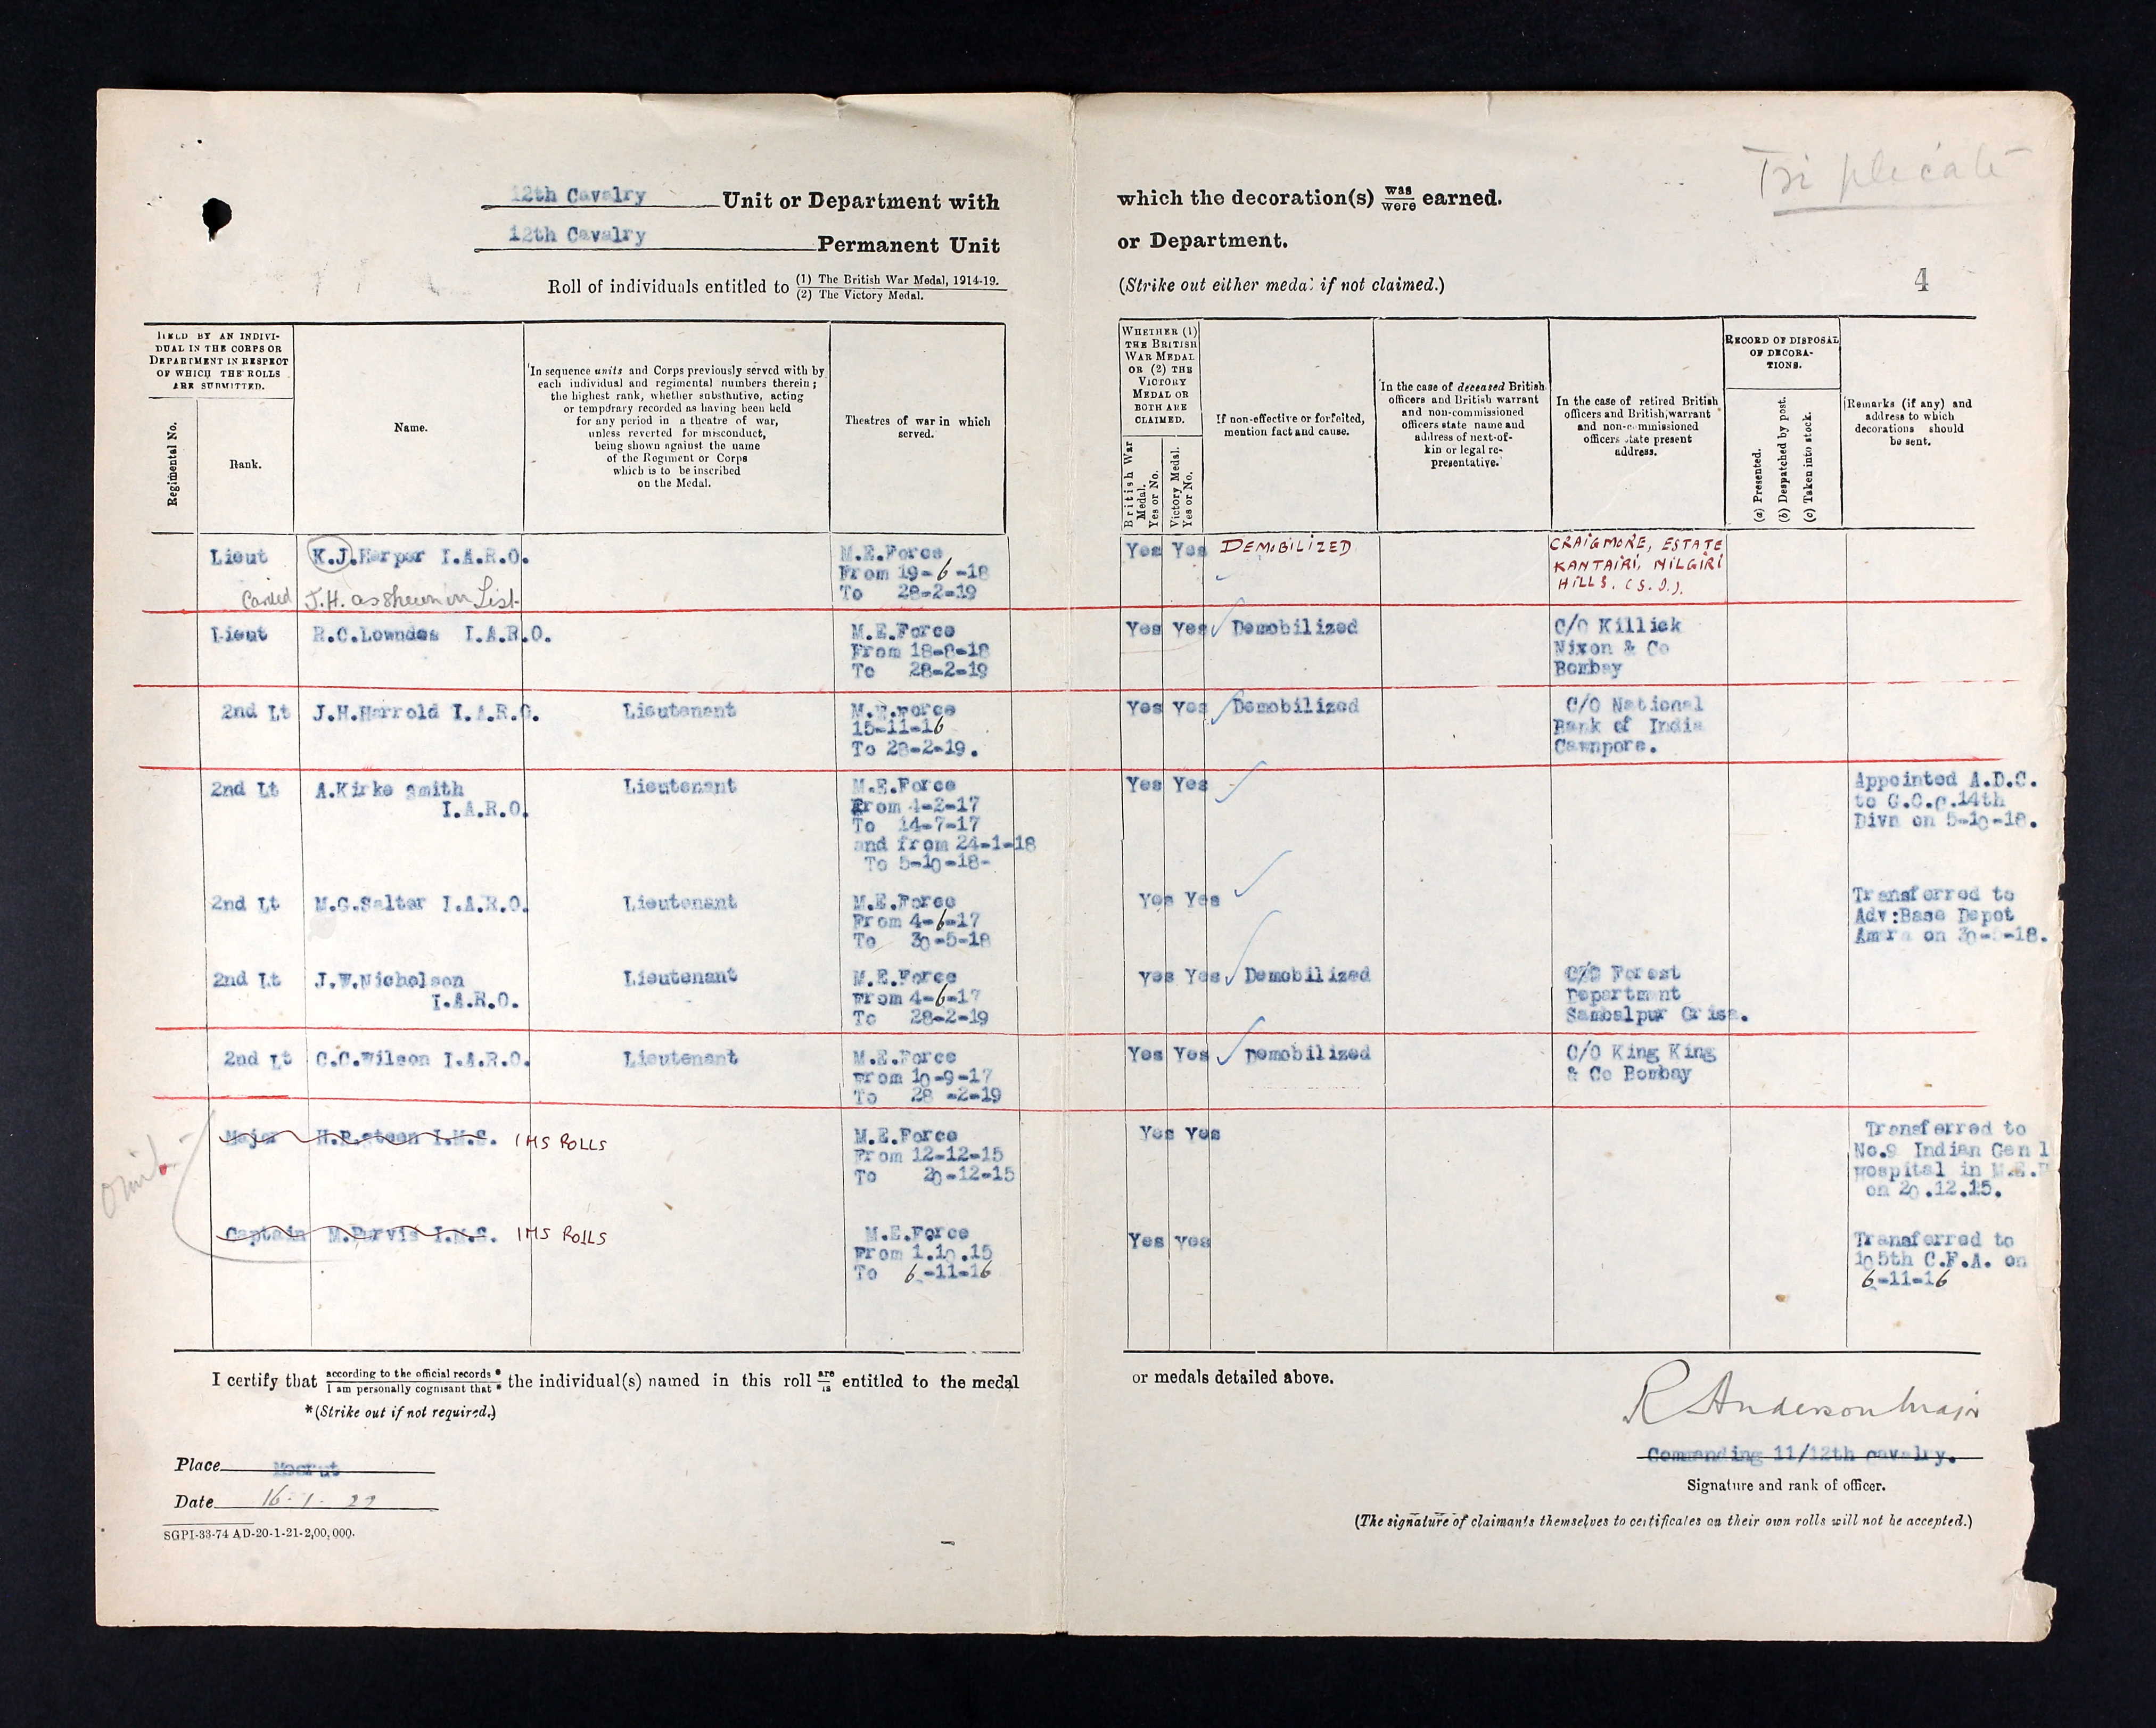 Triplicate
12th Cavalry Unit or Department with which the decoration(s) was/were earned.
12th Cavalry Permanent Unit or Department.
Roll of individuals entitled to (1) The British War Medal, 1914-19. (2) The Victory Medal. (Strike out either medal if not claimed.)
4
HELD BY AN INDIVI-
DUAL IN THE CORPS OR
DEPARTMENT IN RESPECT
OF WHICH THE ROLLS
ARE SUBMITTED.
Regimental No.
Rank.
Name.
In sequence units and Corps previously served with by
each individual and regimental numbers therein;
the highest rank, whether substantive, acting
or temporary recorded as having been held
for any period in a theatre of war,
unless reverted for misconduct,
being shown against the name
of the Regiment or Corps
which is to be inscribed
on the Medal.
Theatres of war in which
served.
WHETHER (1)
THE BRITISH
WAR MEDAL
OR (2) THE
VICTORY
MEDAL OR
BOTH ARE
CLAIMED.
British War
Medal.
Yes or No.
Victory Medal.
Yes or No.
If non-effective or forfeited,
mention fact and cause.
In the case of deceased British
officers and British warrant
and non-commissioned
officers state name and
address of next-of-
kin or legal re-
presentative.
In the case of retired British
officers and British warrant
and non-commissioned
officers state present
address.
RECORD OF DISPOSAL
OF DECORA-
TIONS.
(a) Presented.
(b) Despatched by post.
(c) Taken into stock.
Remarks (if any) and
address to which
decorations should
be sent.
Lieut K.J.Harper I.A.R.O. M.E.Force Yes Yes DEMOBILIZED CRAIGMORE, ESTATE
From 19-6-18 KANTAIRI, NILGIRI
Carded J.H. as shewn in List To 28-2-19 HILLS. (S.I.).
Lieut R.C.Lowndes I.A.R.O. M.E.Force Yes Yes Demobilized C/O Killick
From 18-8-18 Nixon & Co
To 28-2-19 Bombay
2nd Lt J.H.Harrold I.A.R.O. Lieutenant M.E.Force Yes Yes Demobilized C/O National
15-11-16 Bank of India
To 28-2-19. Cawnpore.
2nd Lt A.Kirke Smith Lieutenant M.E.Force Yes Yes Appointed A.D.C.
I.A.R.O. From 4-2-17 to G.O.C.14th
To 14-7-17 Divn on 5-10-18.
and from 24-1-18
To 5-10-18-
2nd Lt M.G.Salter I.A.R.O. Lieutenant M.E.Force Yes Yes Transferred to
From 4-6-17 Adv:Base Depot
To 30-5-18 Amara on 30-5-18.
2nd Lt J.W.Nicholson Lieutenant M.E.Force yes Yes Demobilized C/O Forest
I.A.R.O. From 4-6-17 Department
To 28-2-19 Sambalpur Orisa.
2nd Lt C.C.Wilson I.A.R.O. Lieutenant M.E.Force Yes Yes Demobilized C/O King King
From 10-9-17 & Co Bombay
To 28 -2-19
omit
Major H.B.Steen I.M.S. IMS ROLLS M.E.Force Yes Yes Transferred to
From 12-12-15 No.9 Indian Gen l
To 20-12-15 Hospital in M.E.F
on 20.12.15.
Captain M.Purvis I.M.S. IMS ROLLS M.E.Force Yes yes Transferred to
From 1.10.15 105th C.F.A. on
To 6-11-16 6-11-16
I certify that according to the official records * / I am personally cognisant that * the individual(s) named in this roll are/is entitled to the medal or medals detailed above.
*(Strike out if not required.)
R Anderson Major
Commanding 11/12th cavalry.
Signature and rank of officer.
Place Meerut
Date 16.1.22
(The signature of claimants themselves to certificates on their own rolls will not be accepted.)
SGPI-33-74 AD-20-1-21-2,00,000.